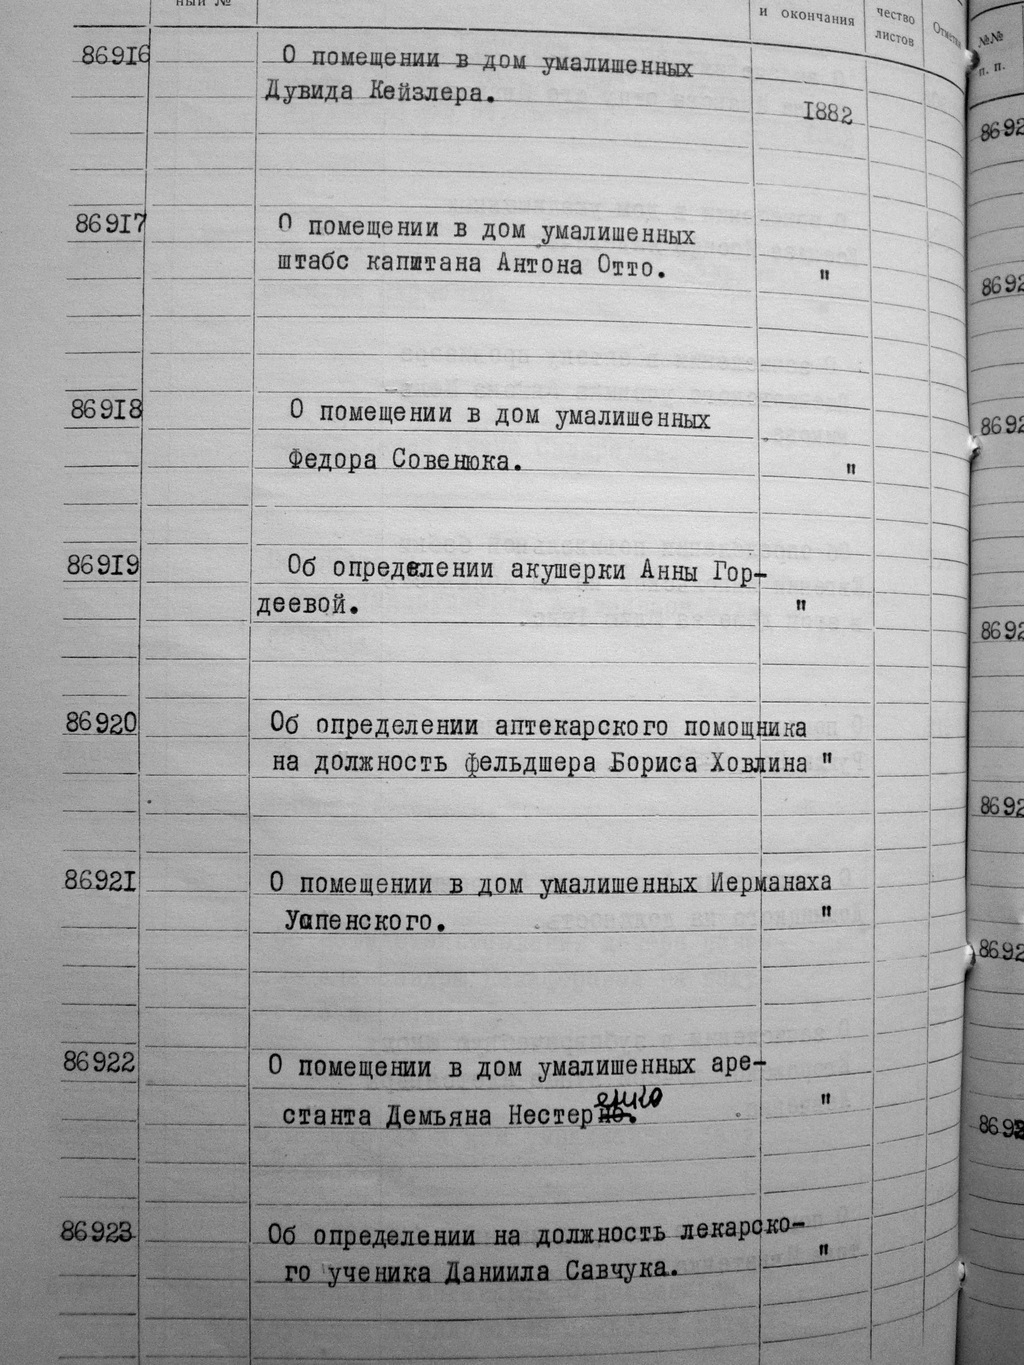 ный №
и окончания
чество
листов
Отметки
№№
п. п.
86916
О помещении в дом умалишенных
Дувида Кейзлера.
1882
86917
О помещении в дом умалишенных
штабс капитана Антона Отто.
"
86918
О помещении в дом умалишенных
Федора Совенюка.
"
86919
Об определении акушерки Анны Гор-
деевой.
"
86920
Об определении аптекарского помощника
на должность фельдшера Бориса Ховлина "
86921
О помещении в дом умалишенных Иерманаха
Успенского.
"
86922
О помещении в дом умалишенных аре-
станта Демьяна Нестеренко
"
86923
Об определении на должность лекарско-
го ученика Даниила Савчука.
"